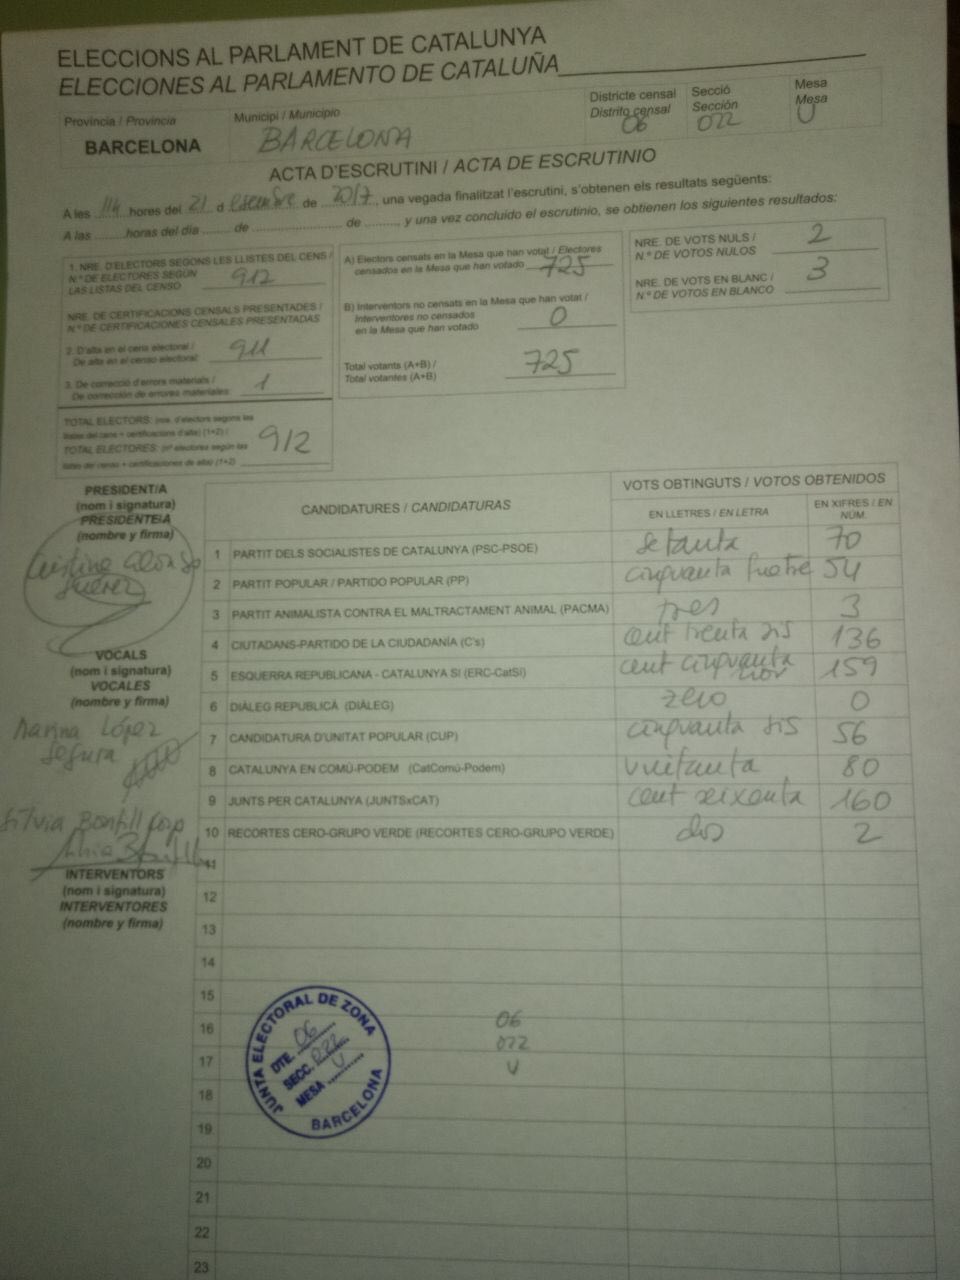 ELECCIONS AL PARLAMENT DE CATALUNYA
ELECCIONES AL PARLAMENTO DE CATALUÑA
Província / Provincia
BARCELONA
Municipi / Municipio
BARCELONA
Districte censal
Distrito censal
06
Secció
Sección
022
Mesa
Mesa
U
ACTA D'ESCRUTINI / ACTA DE ESCRUTINIO
A les hores del 21 d esembre de 2017, una vegada finalitzat l'escrutini, s'obtenen els resultats següents:
A las ........horas del día ....... de ...................... de ......... y una vez concluido el escrutinio, se obtienen los siguientes resultados:
1. NRE. D'ELECTORS SEGONS LES LLISTES DEL CENS /
N.º DE ELECTORES SEGÚN
LAS LISTAS DEL CENSO
912
NRE. DE CERTIFICACIONS CENSALS PRESENTADES /
N.º DE CERTIFICACIONES CENSALES PRESENTADAS
2. D'alta en el cens electoral /
De alta en el censo electoral:
911
3. De correcció d'errors materials /
De corrección de errores materiales:
1
TOTAL ELECTORS: (nre. d'electors segons les
llistes del cens + certificacions d'alta) (1+2) /
TOTAL ELECTORES: (nº electores según las
listas del censo + certificaciones de alta) (1+2)
912
A) Electors censats en la Mesa que han votat / Electores
censados en la Mesa que han votado
725
B) Interventors no censats en la Mesa que han votat /
Interventores no censados
en la Mesa que han votado
0
Total votants (A+B) /
Total votantes (A+B)
725
NRE. DE VOTS NULS /
N.º DE VOTOS NULOS
2
NRE. DE VOTS EN BLANC /
N.º DE VOTOS EN BLANCO
3
PRESIDENT/A
(nom i signatura)
PRESIDENTE/A
(nombre y firma)
Cristina Alonso
Suárez
VOCALS
(nom i signatura)
VOCALES
(nombre y firma)
Marina López
Segura
Sílvia Bonfill
INTERVENTORS
(nom i signatura)
INTERVENTORES
(nombre y firma)
CANDIDATURES / CANDIDATURAS
VOTS OBTINGUTS / VOTOS OBTENIDOS
EN LLETRES / EN LETRA
EN XIFRES / EN
NÚM.
1 PARTIT DELS SOCIALISTES DE CATALUNYA (PSC-PSOE) setanta 70
2 PARTIT POPULAR / PARTIDO POPULAR (PP) cinquanta quatre 54
3 PARTIT ANIMALISTA CONTRA EL MALTRACTAMENT ANIMAL (PACMA) tres 3
4 CIUTADANS-PARTIDO DE LA CIUDADANÍA (C's) cent trenta sis 136
5 ESQUERRA REPUBLICANA - CATALUNYA SI (ERC-CatSí) cent cinquanta nou 159
6 DIÀLEG REPUBLICÀ (DIÀLEG) zero 0
7 CANDIDATURA D'UNITAT POPULAR (CUP) cinquanta sis 56
8 CATALUNYA EN COMÚ-PODEM (CatComú-Podem) vuitanta 80
9 JUNTS PER CATALUNYA (JUNTSxCAT) cent seixanta 160
10 RECORTES CERO-GRUPO VERDE (RECORTES CERO-GRUPO VERDE) dos 2
11
12
13
14
15
16
17
18
19
20
21
22
23
06
022
U
JUNTA ELECTORAL DE ZONA
DTE. 06
SECC. 022
MESA U
BARCELONA